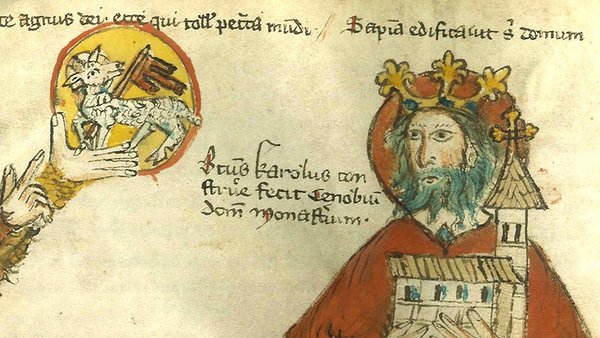 ce agnus dei · ecce qui toll̄ pecc̄a mūdi ·/
Sapīa edificauit s̄ domum
B̄tus karolus con
strue fecit cenobiū
dom̄ monast̄ium ·